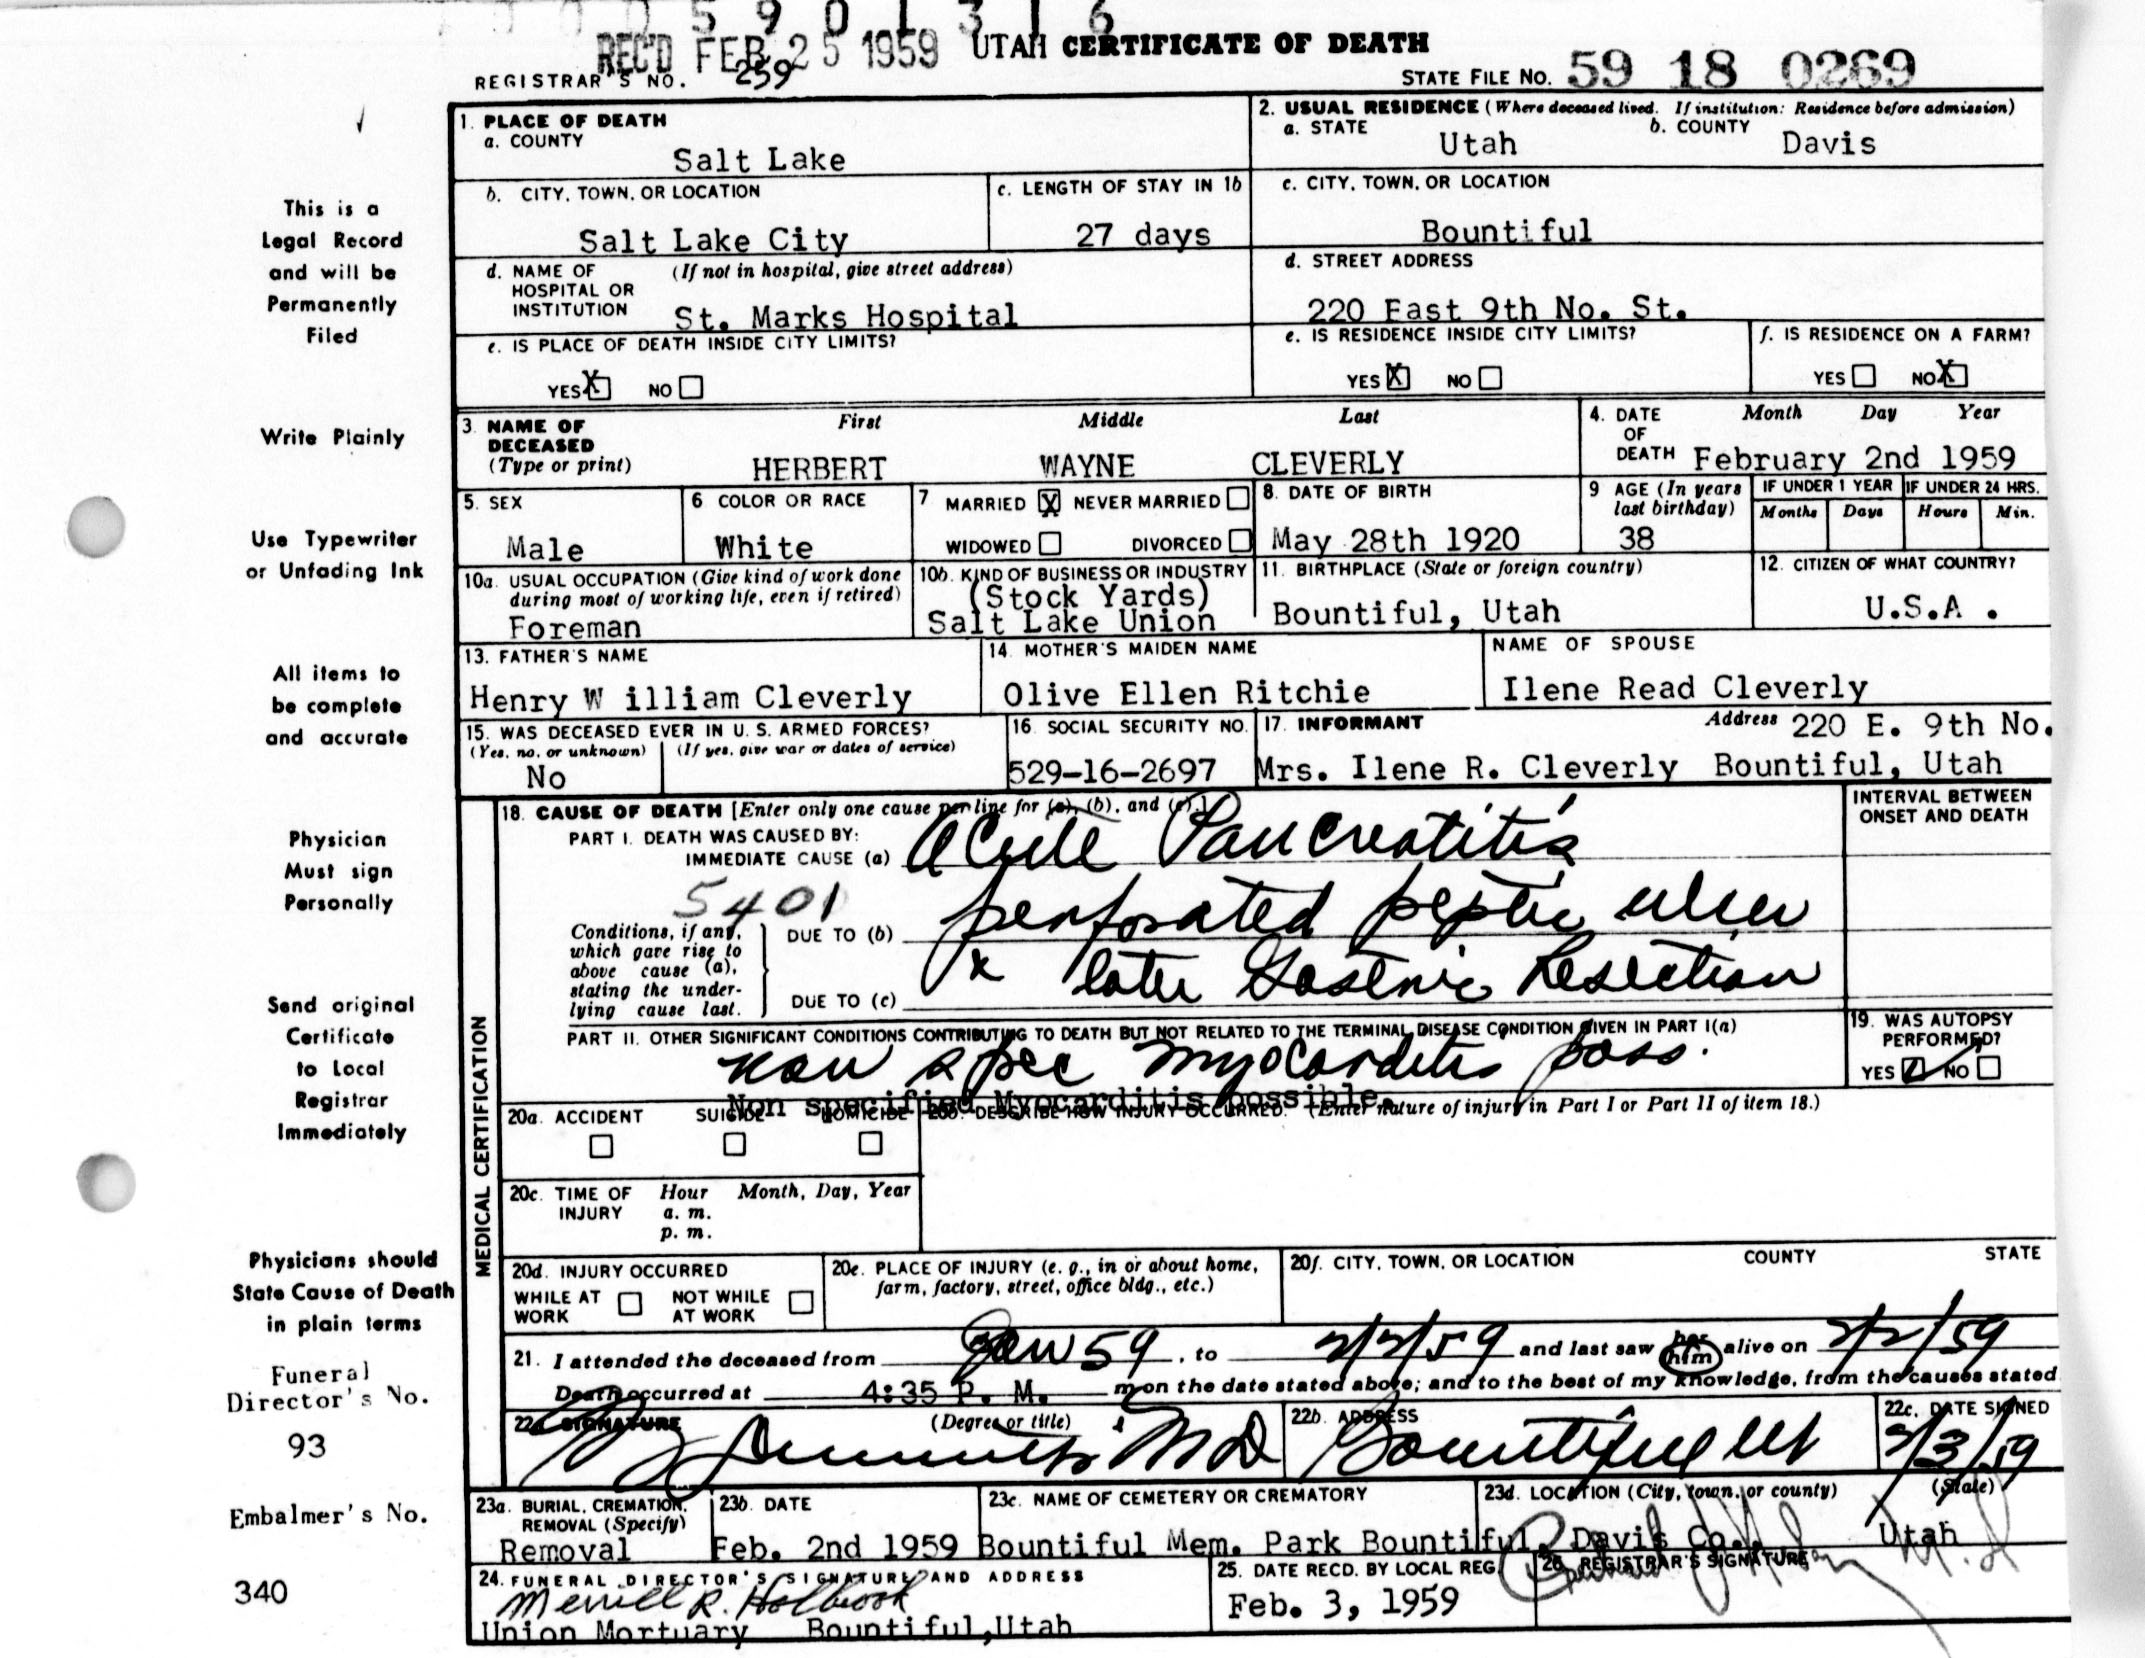 0005901316
REC'D FEB 25 1959 UTAH CERTIFICATE OF DEATH
REGISTRAR'S NO. 259 STATE FILE NO. 59 18 0269
This is a
Legal Record
and will be
Permanently
Filed
Write Plainly
Use Typewriter
or Unfading Ink
All items to
be complete
and accurate
Physician
Must sign
Personally
Send original
Certificate
to Local
Registrar
Immediately
Physicians should
State Cause of Death
in plain terms
Funeral
Director's No.
93
Embalmer's No.
340
1. PLACE OF DEATH
a. COUNTY
Salt Lake
2. USUAL RESIDENCE (Where deceased lived. If institution: Residence before admission)
a. STATE Utah b. COUNTY Davis
b. CITY, TOWN, OR LOCATION
Salt Lake City
c. LENGTH OF STAY IN 1b
27 days
c. CITY, TOWN, OR LOCATION
Bountiful
d. NAME OF (If not in hospital, give street address)
HOSPITAL OR
INSTITUTION St. Marks Hospital
d. STREET ADDRESS
220 East 9th No. St.
e. IS PLACE OF DEATH INSIDE CITY LIMITS?
YES X NO
e. IS RESIDENCE INSIDE CITY LIMITS?
YES X NO
f. IS RESIDENCE ON A FARM?
YES NO X
3. NAME OF First Middle Last
DECEASED
(Type or print) HERBERT WAYNE CLEVERLY
4. DATE Month Day Year
OF
DEATH February 2nd 1959
5. SEX
Male
6 COLOR OR RACE
White
7 MARRIED X NEVER MARRIED
WIDOWED DIVORCED
8. DATE OF BIRTH
May 28th 1920
9 AGE (In years
last birthday)
38
IF UNDER 1 YEAR IF UNDER 24 HRS.
Months Days Hours Min.
10a. USUAL OCCUPATION (Give kind of work done
during most of working life, even if retired)
Foreman
10b. KIND OF BUSINESS OR INDUSTRY
(Stock Yards)
Salt Lake Union
11. BIRTHPLACE (State or foreign country)
Bountiful, Utah
12. CITIZEN OF WHAT COUNTRY?
U.S.A .
13. FATHER'S NAME
Henry W illiam Cleverly
14. MOTHER'S MAIDEN NAME
Olive Ellen Ritchie
NAME OF SPOUSE
Ilene Read Cleverly
15. WAS DECEASED EVER IN U. S. ARMED FORCES?
(Yes, no, or unknown) (If yes, give war or dates of service)
No
16. SOCIAL SECURITY NO.
529-16-2697
17. INFORMANT Address 220 E. 9th No.
Mrs. Ilene R. Cleverly Bountiful, Utah
MEDICAL CERTIFICATION
18. CAUSE OF DEATH [Enter only one cause per line for (a), (b), and (c).]
PART I. DEATH WAS CAUSED BY:
IMMEDIATE CAUSE (a) Acute Pancreatitis
5401
Conditions, if any,
which gave rise to
above cause (a),
stating the under-
lying cause last.
DUE TO (b) perforated peptic ulcer
x later Gastric Resection
DUE TO (c)
INTERVAL BETWEEN
ONSET AND DEATH
PART II. OTHER SIGNIFICANT CONDITIONS CONTRIBUTING TO DEATH BUT NOT RELATED TO THE TERMINAL DISEASE CONDITION GIVEN IN PART I(a)
non spec myocarditis poss.
Non specified Myocarditis possible.
19. WAS AUTOPSY
PERFORMED?
YES NO
20a. ACCIDENT SUICIDE HOMICIDE
20b. DESCRIBE HOW INJURY OCCURRED. (Enter nature of injury in Part I or Part II of item 18.)
20c. TIME OF Hour Month, Day, Year
INJURY a. m.
p. m.
20d. INJURY OCCURRED
WHILE AT WORK NOT WHILE AT WORK
20e. PLACE OF INJURY (e. g., in or about home,
farm, factory, street, office bldg., etc.)
20f. CITY, TOWN, OR LOCATION COUNTY STATE
21. I attended the deceased from Jan 59, to 2/2/59 and last saw her him alive on 2/2/59
Death occurred at 4:35 P. M. m on the date stated above; and to the best of my knowledge, from the causes stated
22a. SIGNATURE (Degree or title)
MD
22b. ADDRESS
Bountiful Ut
22c. DATE SIGNED
2/3/59
23a. BURIAL, CREMATION,
REMOVAL (Specify)
Removal
23b. DATE
Feb. 2nd 1959
23c. NAME OF CEMETERY OR CREMATORY
Bountiful Mem. Park
23d. LOCATION (City, town, or county) (State)
Bountiful, Davis Co., Utah
24. FUNERAL DIRECTOR'S SIGNATURE AND ADDRESS
Merrill R. Holbrook
Union Mortuary Bountiful, Utah
25. DATE RECD. BY LOCAL REG.
Feb. 3, 1959
26. REGISTRAR'S SIGNATURE